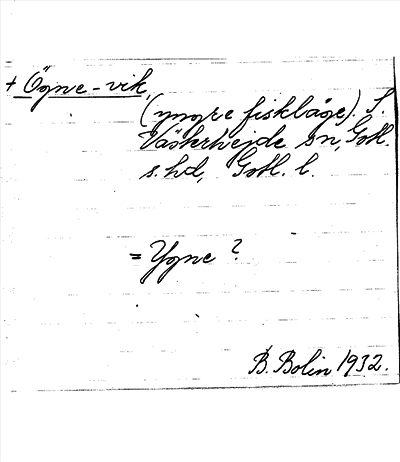 + Ögne-vik,
(yngre fiskläge). S.
Västerhejde sn, Gotl.
s. hd, Gotl. l.
= Ygne?
B. Bolin 1932.